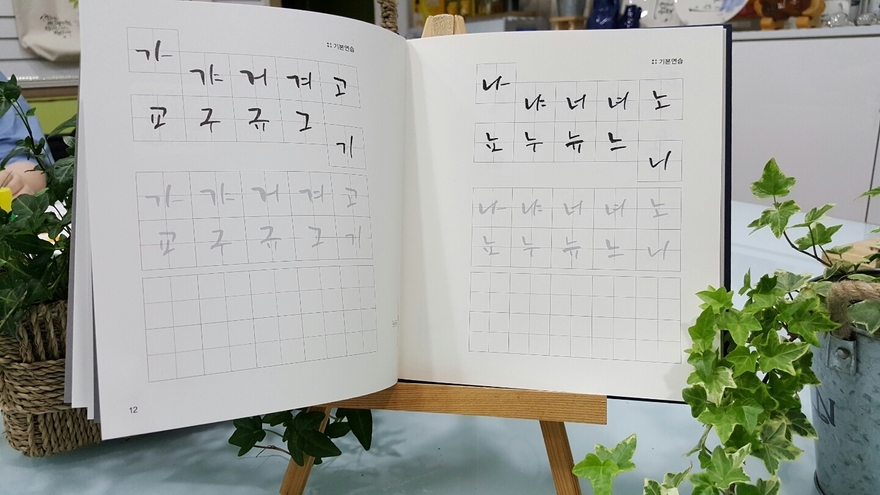 기본연습
가
갸 거 겨 고
교 구 규 그
기
가 갸 거 겨 고
교 구 규 그 기
12
기본연습
나
냐 너 녀 노
뇨 누 뉴 느
니
나 냐 너 녀 노
뇨 누 뉴 느 니
N